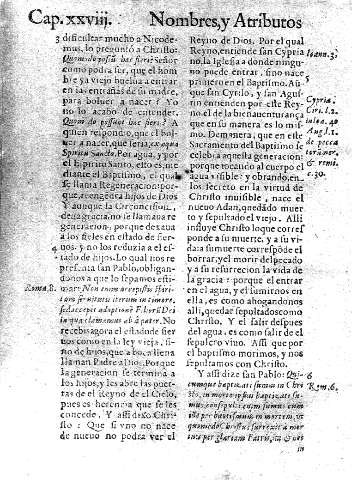 Cap. xxviii.
Nombres, y Atributos
3 dificultar mucho a Nicode-
mus, lo preguntò a Christo:
Quomodo possũt hæc fieri? Señor
como podra ser, que el hom-
bre ya viejo buelua a entrar
en las entrañas de su madre,
para boluer a nacer? Yo
no lo acabo de entender.
Quomodo possunt hæc fieri? A
quien respondio, que el bol-
uer a nacer, que seria, ex aqua
Spiritu Sancto. Por agua, y por
el Spiritu Santo, esto es, me-
diante el Baptismo, el qual
se llama Regeneracion: por-
que, engendra hijos de Dios
Y aunque la Circuncision,
daua gracia, no se llamaua re
generacion, porque dexaua
a los fieles en estado de sier-
4 uos, y no los reduzia a el es-
tado de hijos. Lo qual nos re
presẽta san Pablo, obligan-
donos a que sepamos esti-
Roma. 8.
mar: Non enim accepistis spiri-
tum seruitutis iterum in timore,
sed accepistis adoptionẽ Filiorũ Dei
in qua clamamus abba pater. No
recebis agora el estado de sier
uos como en la ley vieja, si-
no de hijos, que a boca llena
llaman Padre a Dios. Porque
la generacion se termina a
los hijos, y les abre las puer-
tas de el Reyno de el Cielo,
pues es herencia que se les
concede. Y assi dixo Chri-
sto: Que si vno no nace
de nueuo no podra ver el
Reyno de Dios. Por el qual
Reyno, entiende san Cypria
Ioann. 3.
no, la Iglesia a donde ningu-
no puede entrar, sino nace
5
primero en el Baptismo. Aun
que san Cyrilo, y san Agus-
Cypria.
tin entienden por este Rey-
Ciri. l. 2.
no el de la bienauenturança
in Ioa. c.
que en su manera es lo mis-
40
mo. De manera, que en este
Aug. l. 1.
Sacramento del Baptismo se
de pecca
celebra aquesta generacion:
torũ mer.
porque tocando al cuerpo el
& remis.
agua visible: y obrando, en
c. 30.
los secreto en la virtud de
Christo inuisible, nace el
nueuo Adan, quedado muer
to y sepultado el viejo. Assi
influye Christo lo que corres
ponde a su muerte, y a su vi-
da: a su muerte correspõde el
borrar, y el morir del pecado
y a su resurreccion la vida de
la gracia: porque el entrar
en el agua, y el sumirnos en
ella, es como ahogandonos
alli, quedar sepultados como
Christo. Y el salir despues
del agua, es como salir de el
sepulcro viuo. Assi que por
el baptismo morimos, y nos
sepultamos con Christo.
Y assi dize san Pablo: Qui-
6
cumque baptizati sumus in Chri
Rom. 6.
sto, in morte ipsius baptizati su-
mus; consepulti enim sumus cum
illo per baptismum in mortem, vt
quomodo Christus surrexit a mor
tuis per gloriam Patris, ita & nos
in